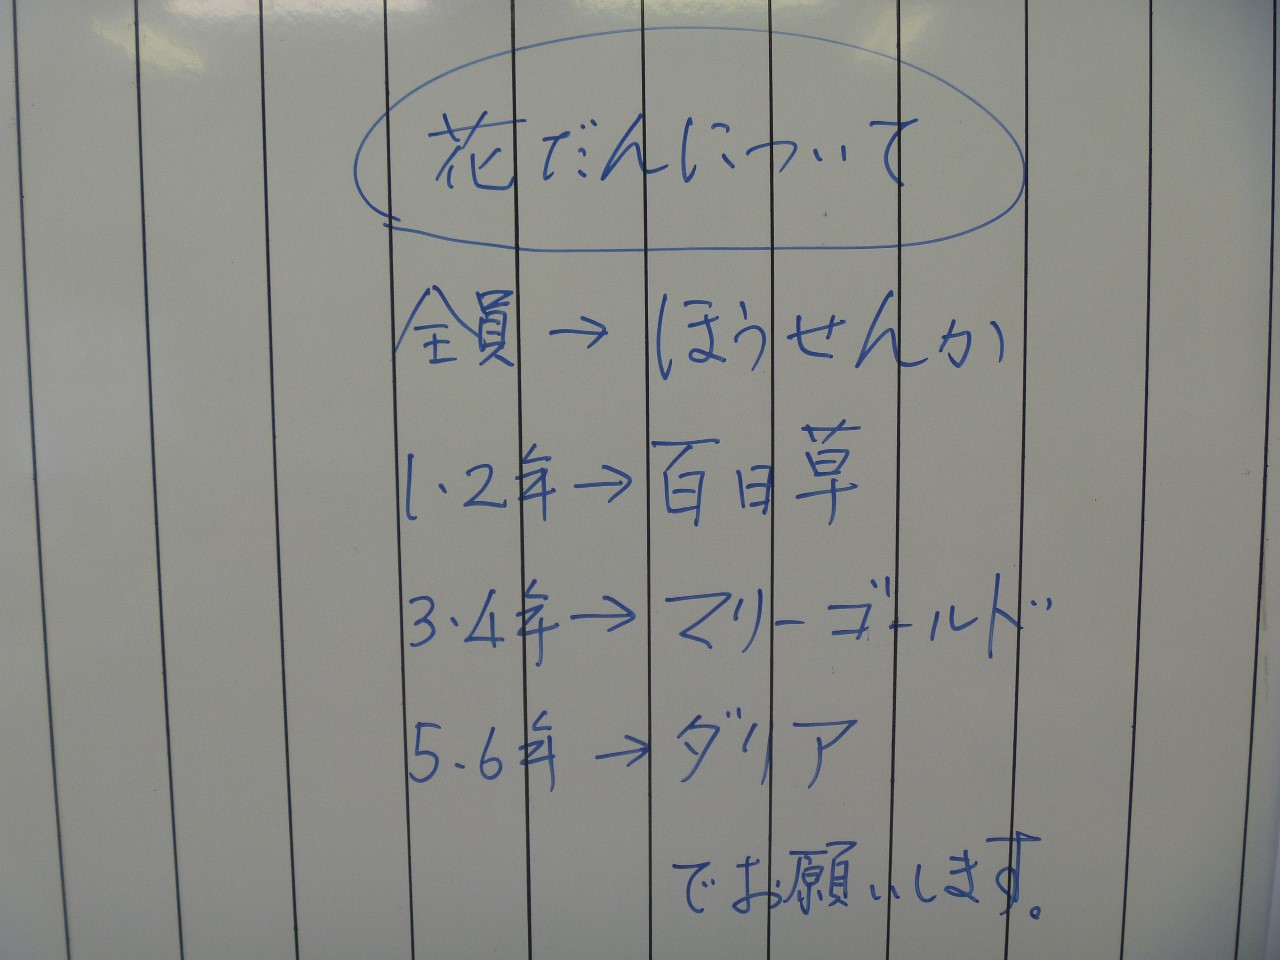 花だんについて
全員→ほうせんか
1・2年→百日草
3・4年→マリーゴールド
5・6年→ダリア
でお願いします。